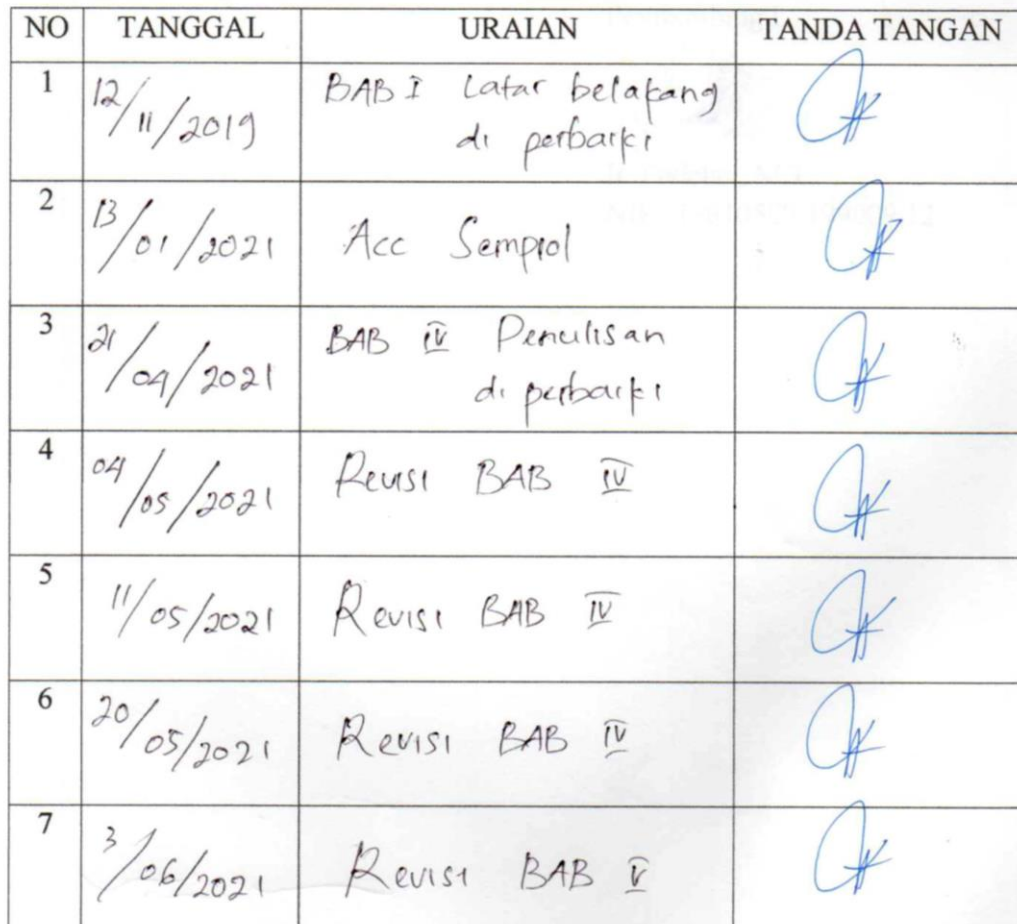 NO TANGGAL URAIAN TANDA TANGAN
1 12/11/2019 BAB I Latar belakang
di perbaiki
2 13/01/2021 Acc Semprol
3 21/04/2021 BAB IV Penulisan
di perbaiki
4 04/05/2021 Revisi BAB IV
5 11/05/2021 Revisi BAB IV
6 20/05/2021 Revisi BAB IV
7 3/06/2021 Revisi BAB V